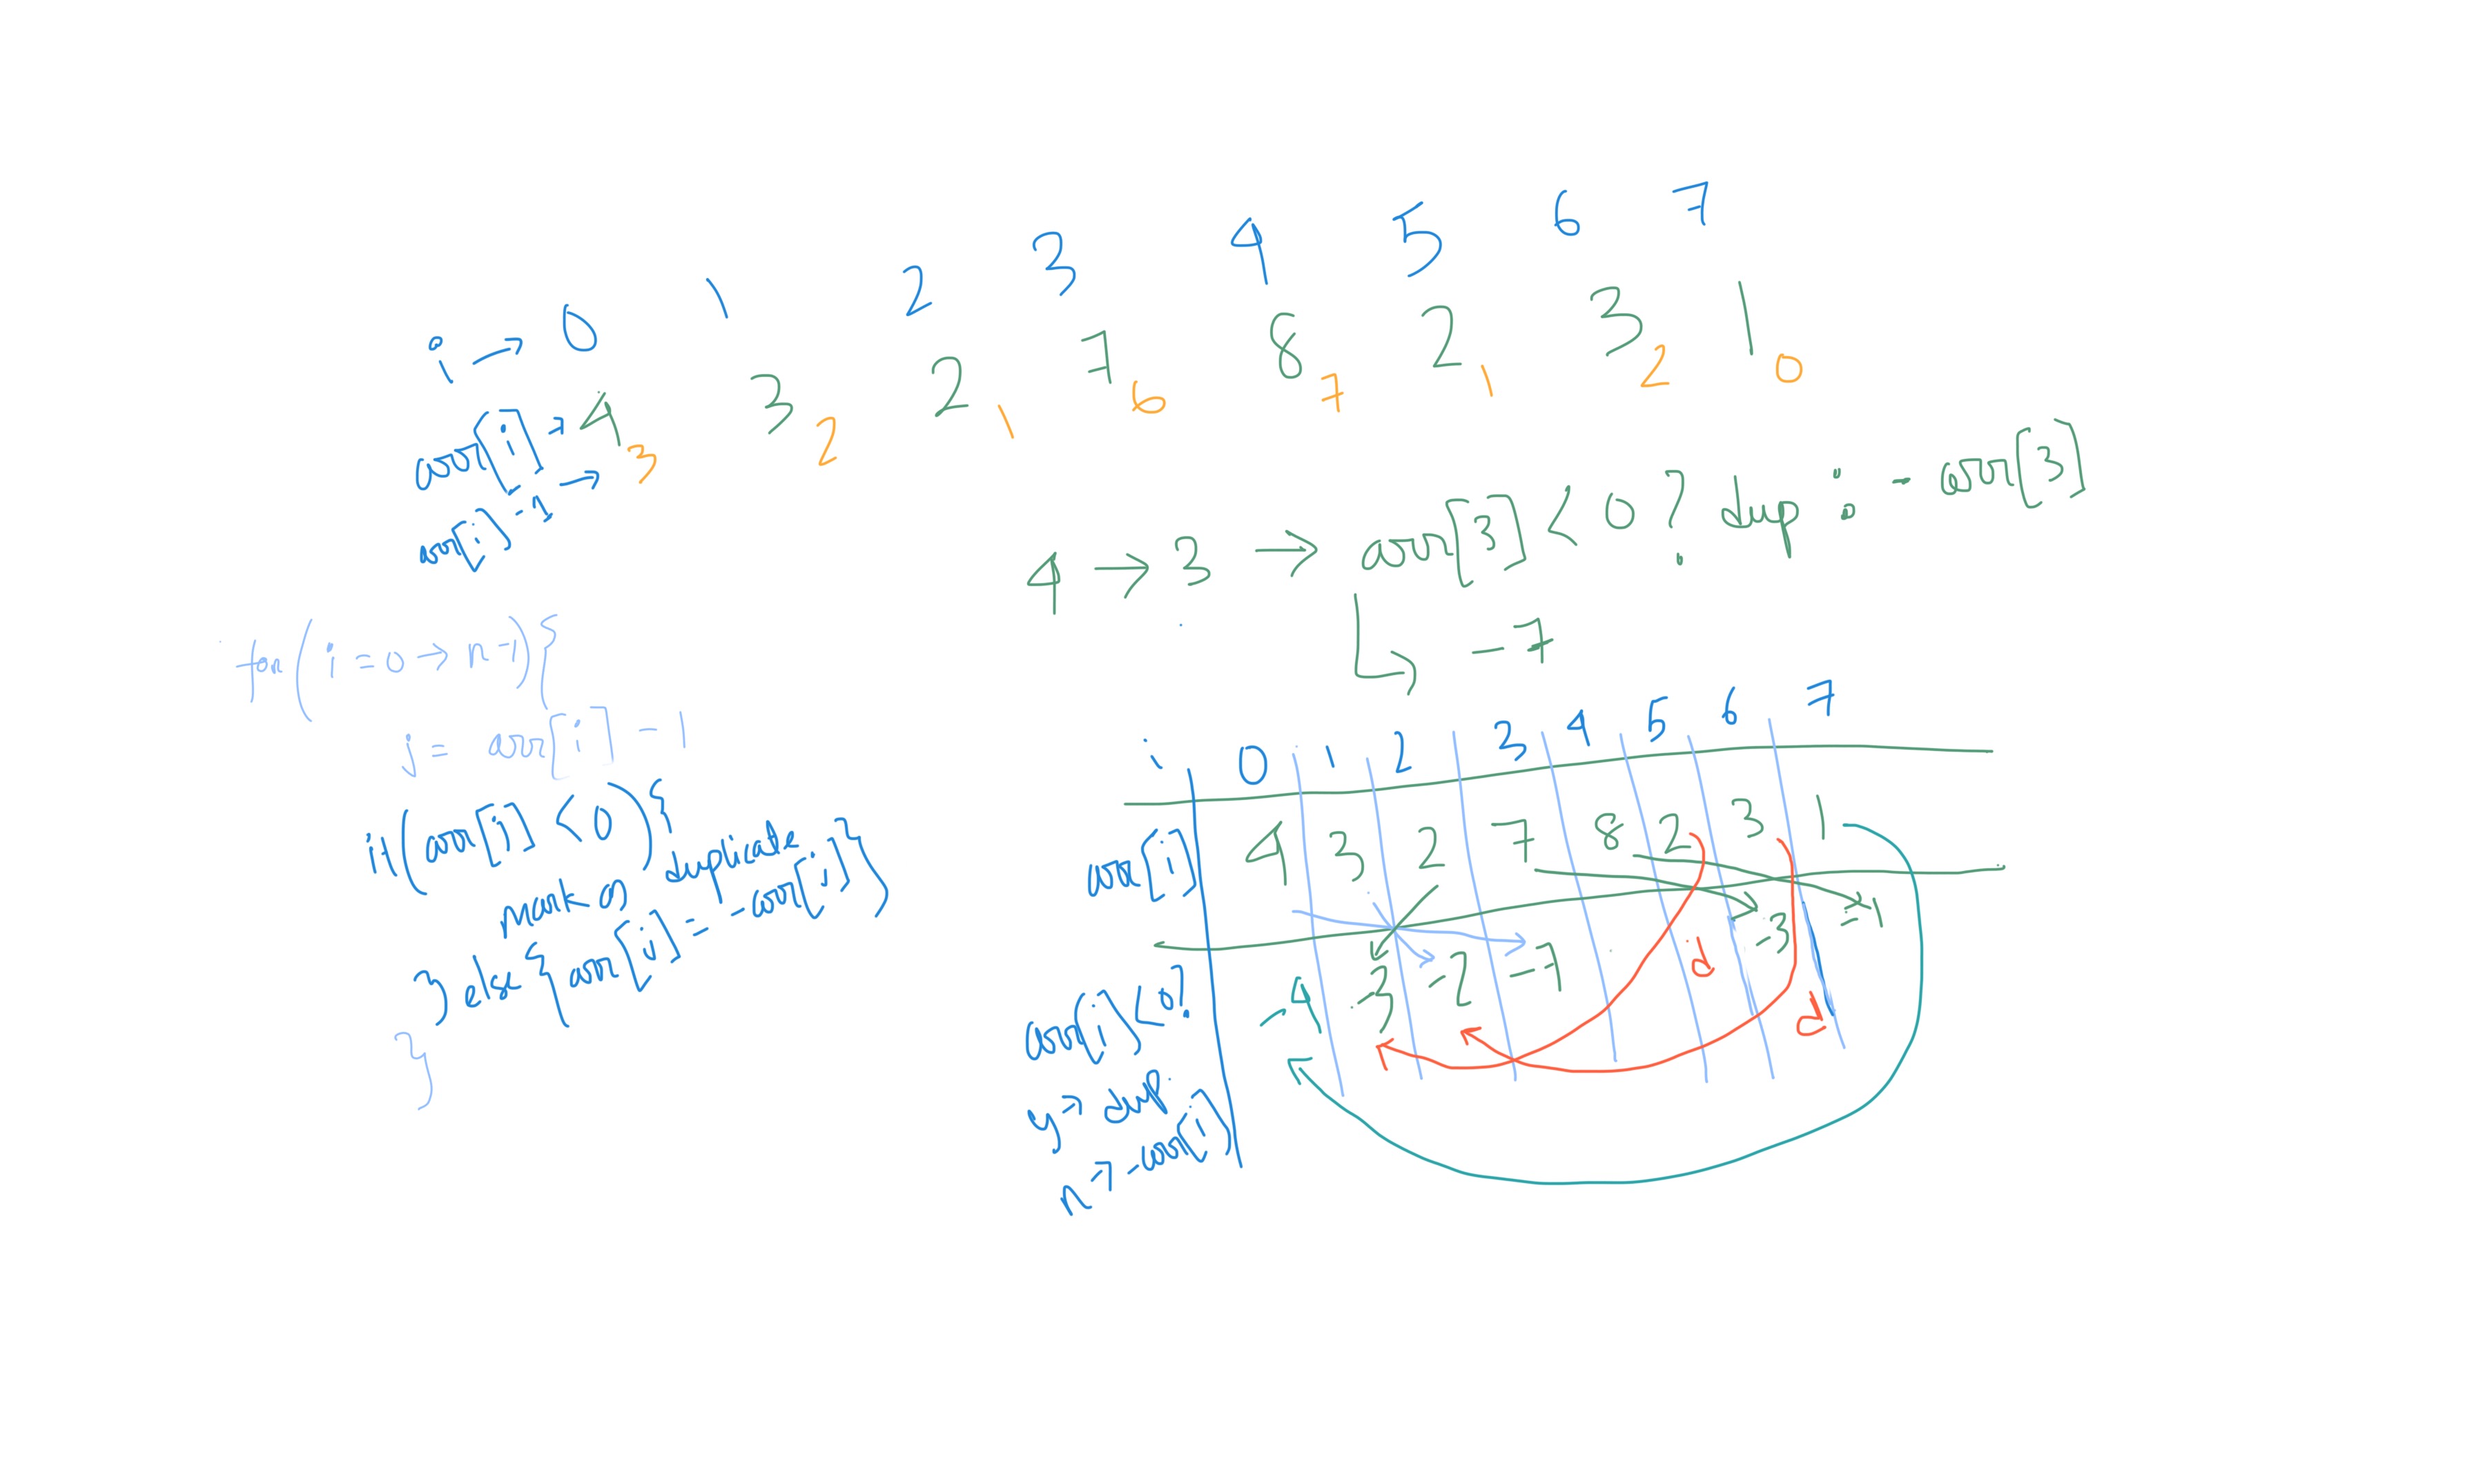 i → 0 1 2 3 4 5 6 7
arr[i] → 4 3 2 7 8 2 3 1
arr[i] -1 → 3 2 1 6 7 1 2 0
4 → 3 → arr[3] < 0 ? dup : - arr[3]
-7
for (i = 0 → n-1) {
j = arr[i] - 1
if (arr[j] < 0) {
mark as duplicate
} else { arr[j] = - arr[j] }
}
i 0 1 2 3 4 5 6 7
arr[i] 4 3 2 7 8 2 3 1
arr[j] < 0? -4 -3 -2 -7 d -3 -1
d
y → dup.
n → -arr[j]